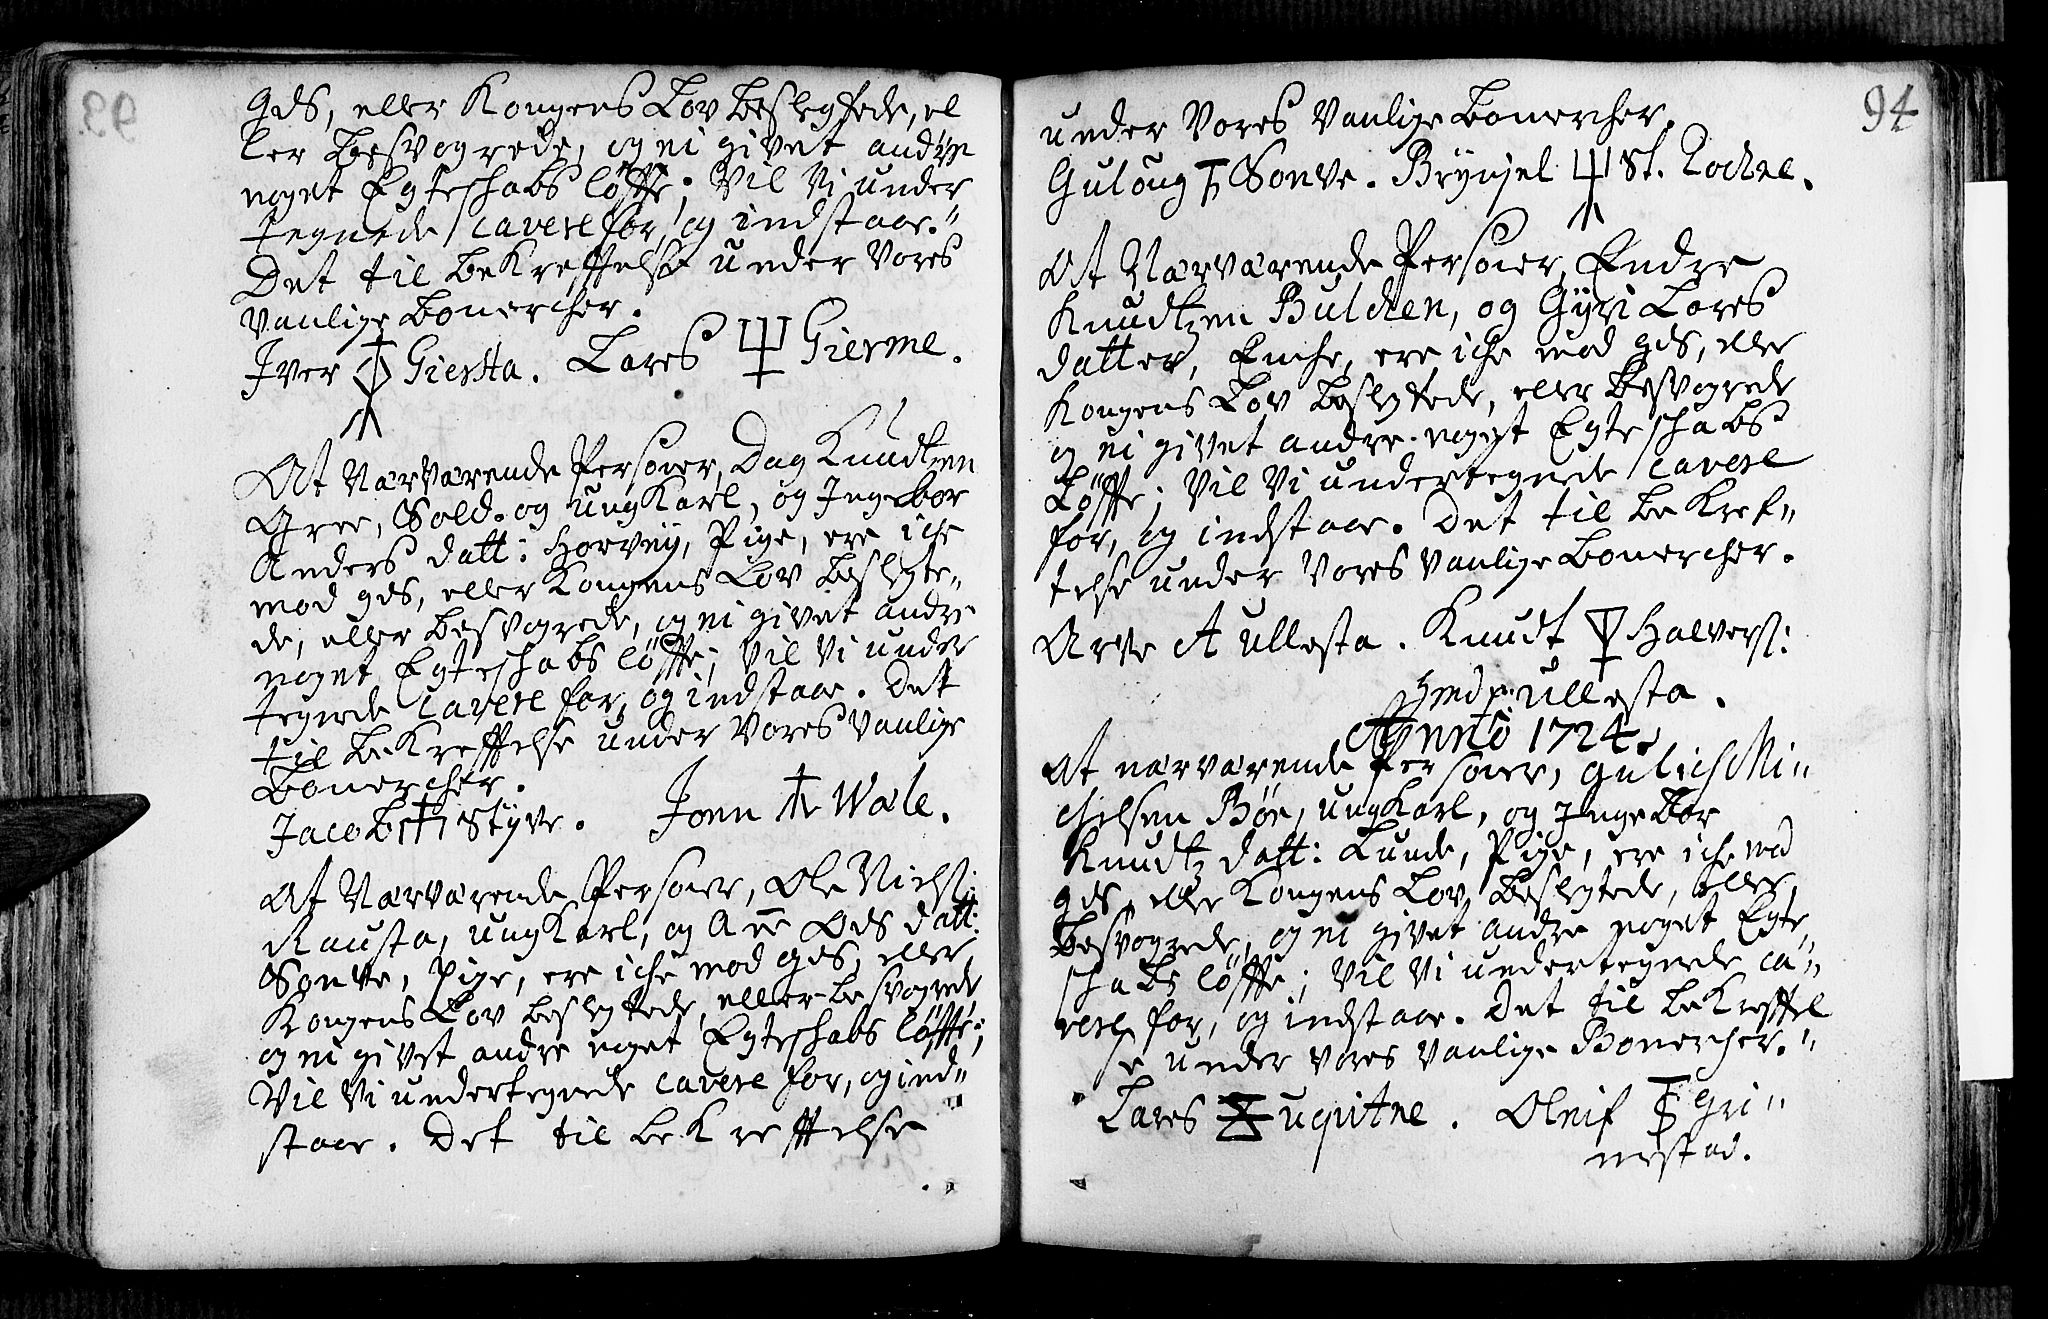 Gds, eller Kongens Lov beslegtede, el
ler besvogrede, og ei givet andre
noget Egteschabs løffte; Vil Vi under
tegnede cavere for, og indstaar."
Det til bekrefftelse under Vores
vanlige Bouercher.
Iver Giersta. Lares Gierme.
At Nærværende Personer, Dag Knudtzen
Gree, Sold. og ungKarl, og Ingebor
Anders datt: Horvey, Pige, ere iche
mod gds, eller Kongens Lov beslegte„
de, eller besvogrede, og ei givet andre
noget Egteschabs løffte; Vil Vi under
tegnede cavere for, og indstaar. Det
til bekrefftelse under Vores Vanlige
Bouercher.
Jacob Styve. Jonn Wale.
At Nærværende Personer, Ole Nichls:
Rausta, ungKarl, og Añe Ods datt:
Sonve, Pige, ere iche mod gds, eller
Kongens Lov beslegtede, eller besvogrede
og ei givet andre noget Egteschabs løffte;
Vil Vi undertegnede cavere for, og ind„
staar. Det til bekrefftelse
94
under Vores Vanlige Bouercher.
Guloug Sonve. Brynjel St. Rochne.
At Nærværende Personer, Endre
Knudtzen Bulchen, og Gyri Lares
datter, Enche, ere iche mod gds, eller
Kongens Lov beslegtede, eller besvogrede
og ei givet andre noget Egteschabs
Løffte; Vil Vi undertegnede cavere
for, og indstaar. Det til bekref„
telse under Vores Vanlige Bouercher.
Arve Aullesta. Knudt Halvers:
Ullesta.
Anno 1724.
At nærværende Personer, Gulich Mi„
chelsen Bøe, ungKarl, og Ingebor
Knudtz datt: Lunde, Pige, ere iche mod
gds, eller Kongens Lov beslegtede, eller
besvogrede, og ei givet andre noget Egte„
schabs løffte; Vil Vi undertegnede ca„
vere for, og indstaar. Det til bekrefftel
se under Vores Vanlige Bouercher."
Lares uqvitne. Oleif Gri„
mestad.